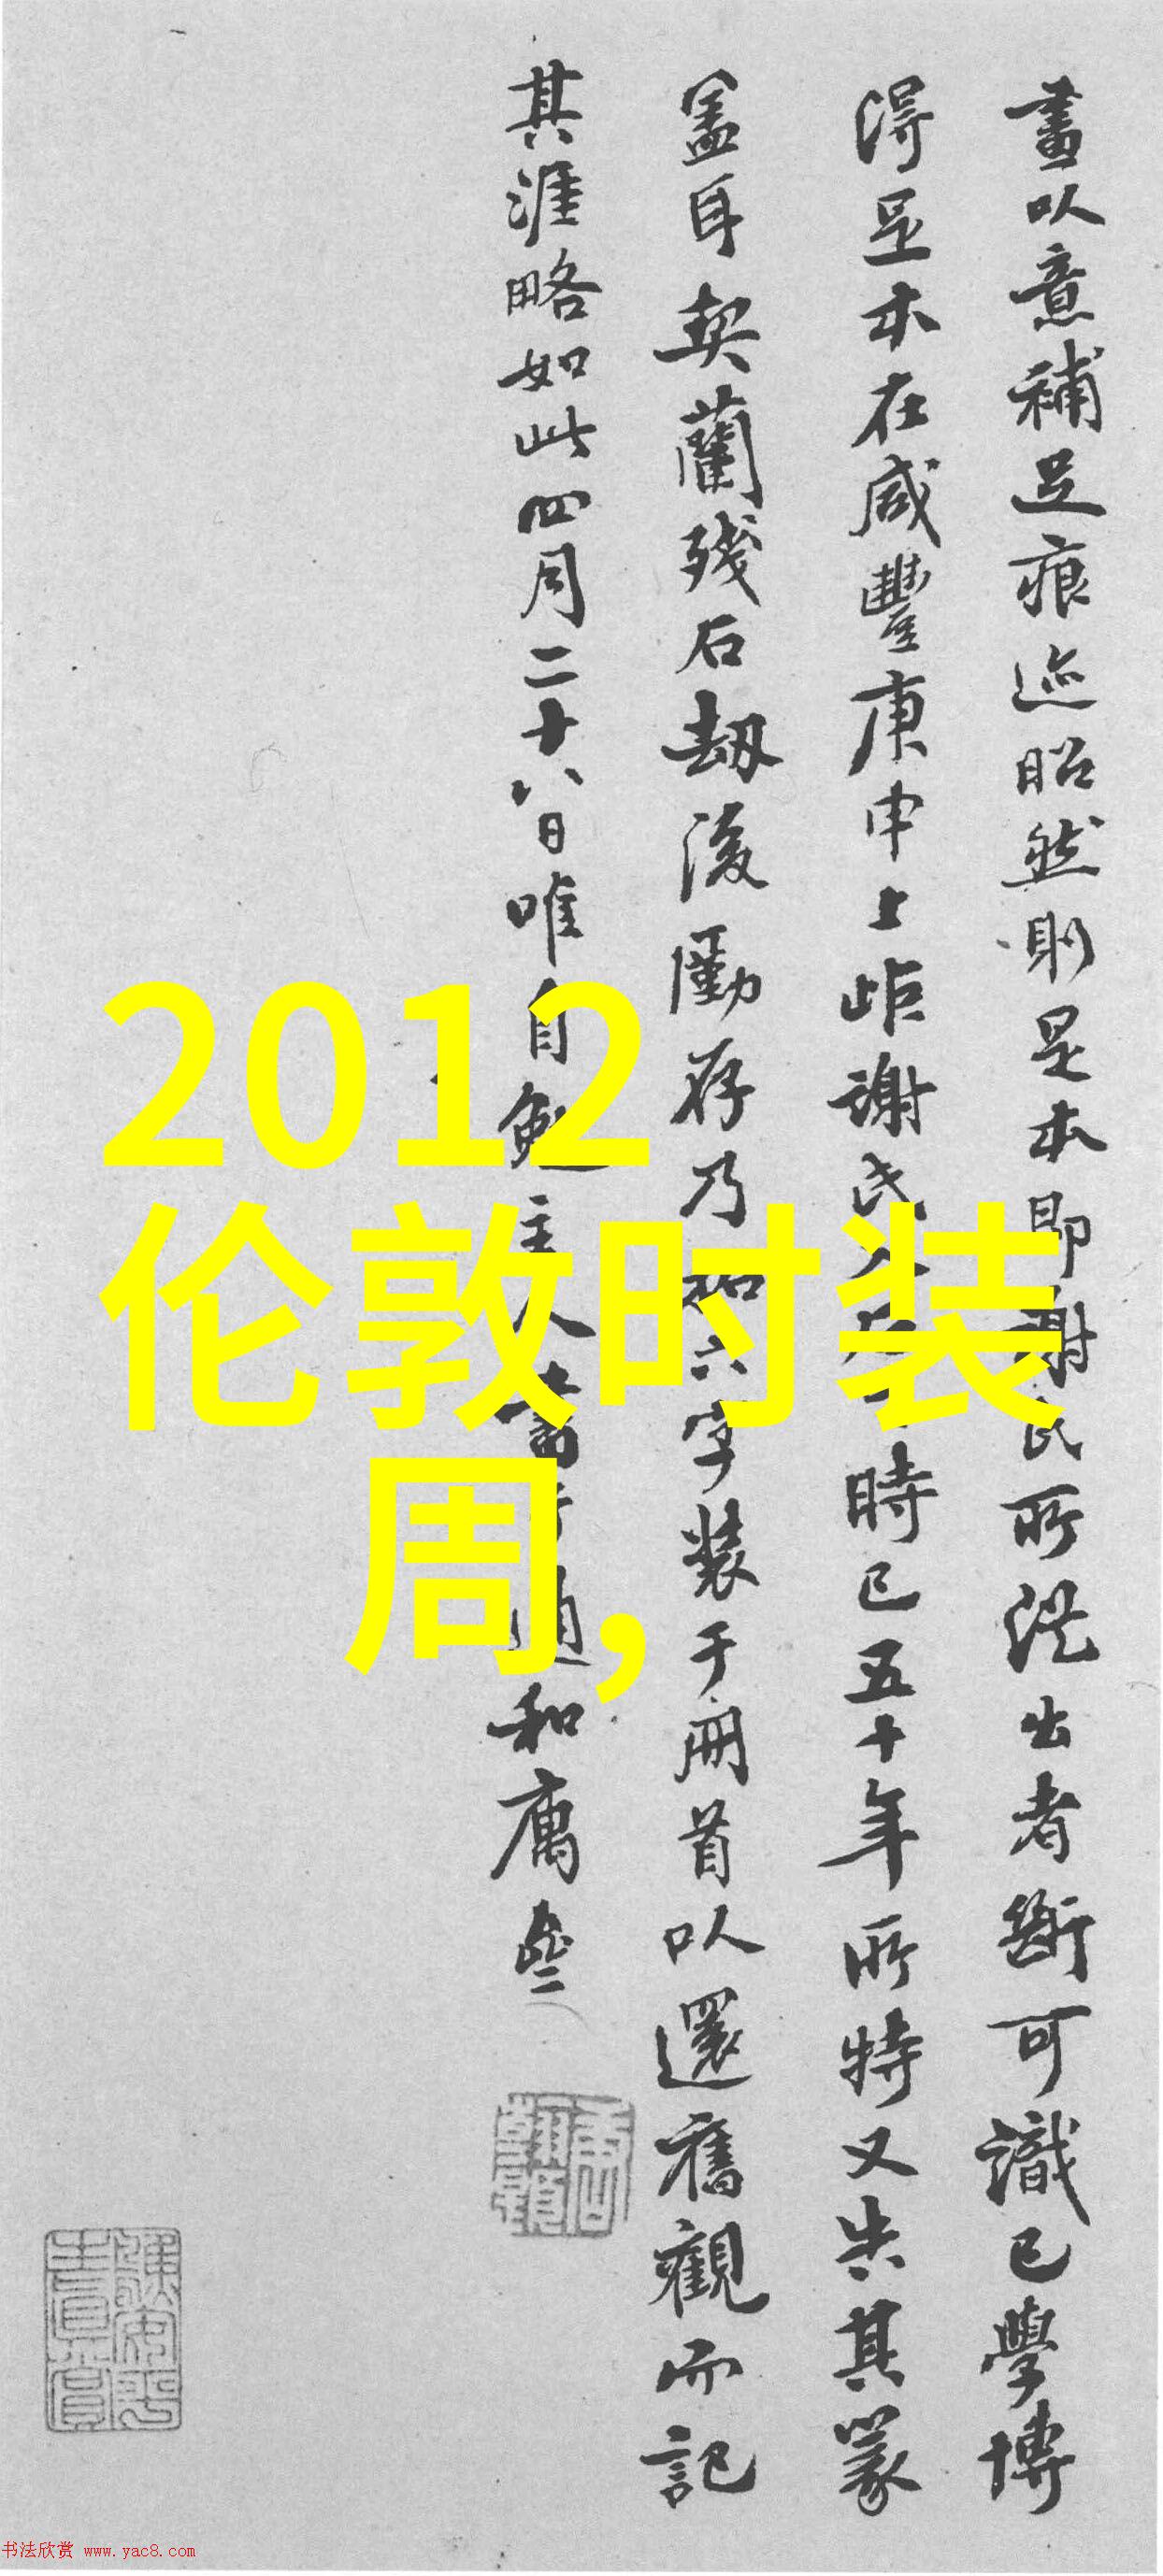 畫以意補足痕迹昭然則是本即謝氏所從出者斷可識已學博
得足本在咸豐庚申上距謝氏時已五十年所特又失其篆
蓋耳契蘭殘石劫後廑存乃六字裝于冊首以還舊觀而記
其涯略如此四月二十八日唯自勉主人書于和庽
2012
伦敦时装
周,
书法欣赏 www.yac8.com